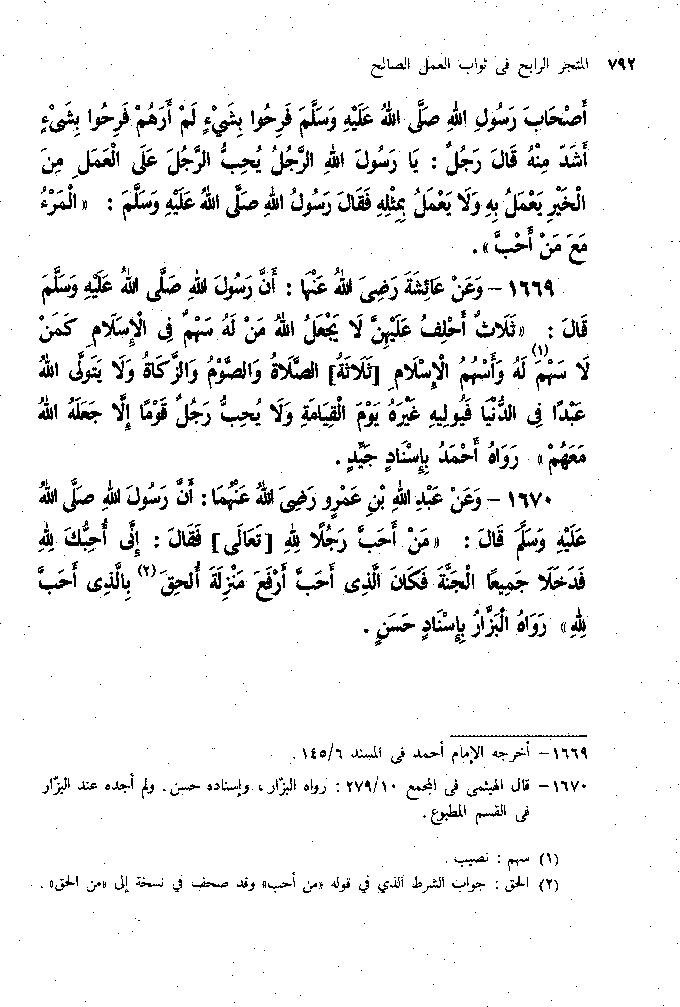 ٧٩٢ المتجر الرابح فى ثواب العمل الصالح
أَصْحَابَ رَسُولِ اللهِ صَلَّى اللهُ عَلَيْهِ وَسَلَّمَ فَرِحُوا بِشَيْءٍ لَمْ أَرَهُمْ فَرِحُوا بِشَىْءٍ
أَشَدَّ مِنْهُ قَالَ رَجُلٌ : يَا رَسُولَ اللهِ الرَّجُلُ يُحِبُّ الرَّجُلَ عَلَى الْعَمَلِ مِنَ
الْخَيْرِ يَعْمَلُ بِهِ وَلَا يَعْمَلُ بِمِثْلِهِ فَقَالَ رَسُولُ اللهِ صَلَّى اللهُ عَلَيْهِ وَسَلَّمَ : «الْمَرْءُ
مَعَ مَنْ أَحَبَّ» .
١٦٦٩ - وَعَنْ عَائِشَةَ رَضِىَ اللهُ عَنْهَا : أَنَّ رَسُولَ اللهِ صَلَّى اللهُ عَلَيْهِ وَسَلَّمَ
قَالَ : «ثَلَاثٌ أَحْلِفُ عَلَيْهِنَّ لَا يَجْعَلُ اللهُ مَنْ لَهُ سَهْمٌ فِى الْإِسْلَامِ كَمَنْ
لَا سَهْمَ(١) لَهُ وَأَسْهُمُ الْإِسْلَامِ [ثَلَاثَةٌ] الصَّلَاةُ وَالصَّوْمُ وَالزَّكَاةُ وَلَا يَتَوَلَّى اللهُ
عَبْدًا فِى الدُّنْيَا فَيُولِيهِ غَيْرَهُ يَوْمَ الْقِيَامَةِ وَلَا يُحِبُّ رَجُلٌ قَوْمًا إِلَّا جَعَلَهُ اللهُ
مَعَهُمْ» رَوَاهُ أَحْمَدُ بِإِسْنَادٍ جَيِّدٍ .
١٦٧٠ - وَعَنْ عَبْدِ اللهِ بْنِ عَمْرٍو رَضِىَ اللهُ عَنْهُمَا : أَنَّ رَسُولَ اللهِ صَلَّى اللهُ
عَلَيْهِ وَسَلَّمَ قَالَ : «مَنْ أَحَبَّ رَجُلًا لِلهِ [تَعَالَى] فَقَالَ : إِنِّى أُحِبُّكَ لِلهِ
فَدَخَلَا جَمِيعًا الْجَنَّةَ فَكَانَ الَّذِى أَحَبَّ أَرْفَعَ مَنْزِلَةً أُلْحِقَ(٢) بِالَّذِى أَحَبَّ
لِلهِ» رَوَاهُ الْبَزَّارُ بِإِسْنَادٍ حَسَنٍ .
١٦٦٩ - أخرجه الإمام أحمد فى المسند ١٤٥/٦ .
١٦٧٠ - قال الهيثمى فى المجمع ٢٧٩/١٠ : رواه البزّار ، وإسناده حسن . ولم أجده عند البزّار
فى القسم المطبوع .
(١) سهم : نصيب .
(٢) الحق : جواب الشرط الذي في قوله «من أحب» وقد صحف في نسخة إلى «من الحق» .